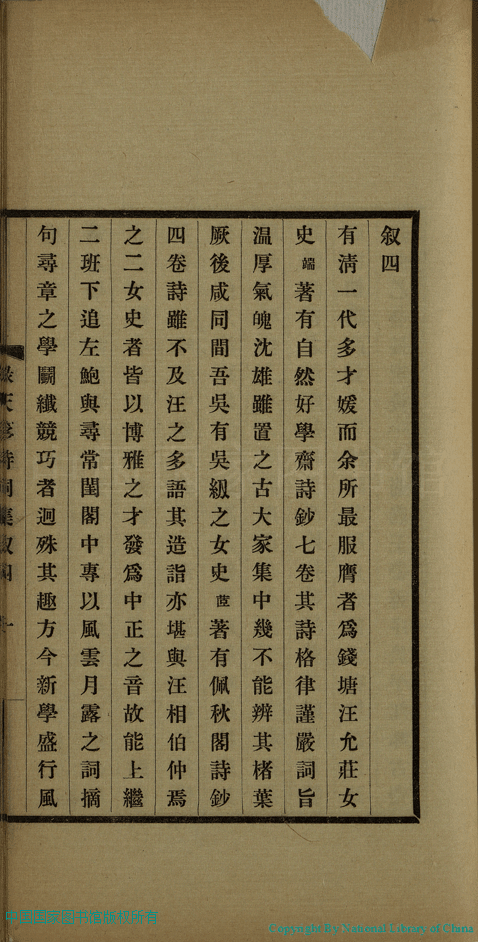 叙四
有清一代多才媛而余所最服膺者爲錢塘汪允莊女
史端著有自然好學齋詩鈔七卷其詩格律謹嚴詞旨
温厚氣魄沈雄雖置之古大家集中幾不能辨其楮葉
厥後咸同間吾吳有吳紉之女史茝著有佩秋閣詩鈔
四卷詩雖不及汪之多語其造詣亦堪與汪相伯仲焉
之二女史者皆以博雅之才發爲中正之音故能上繼
二班下追左鮑與尋常閨閣中專以風雲月露之詞摘
句尋章之學鬭纖競巧者迥殊其趣方今新學盛行風
Copyright By National Library of China